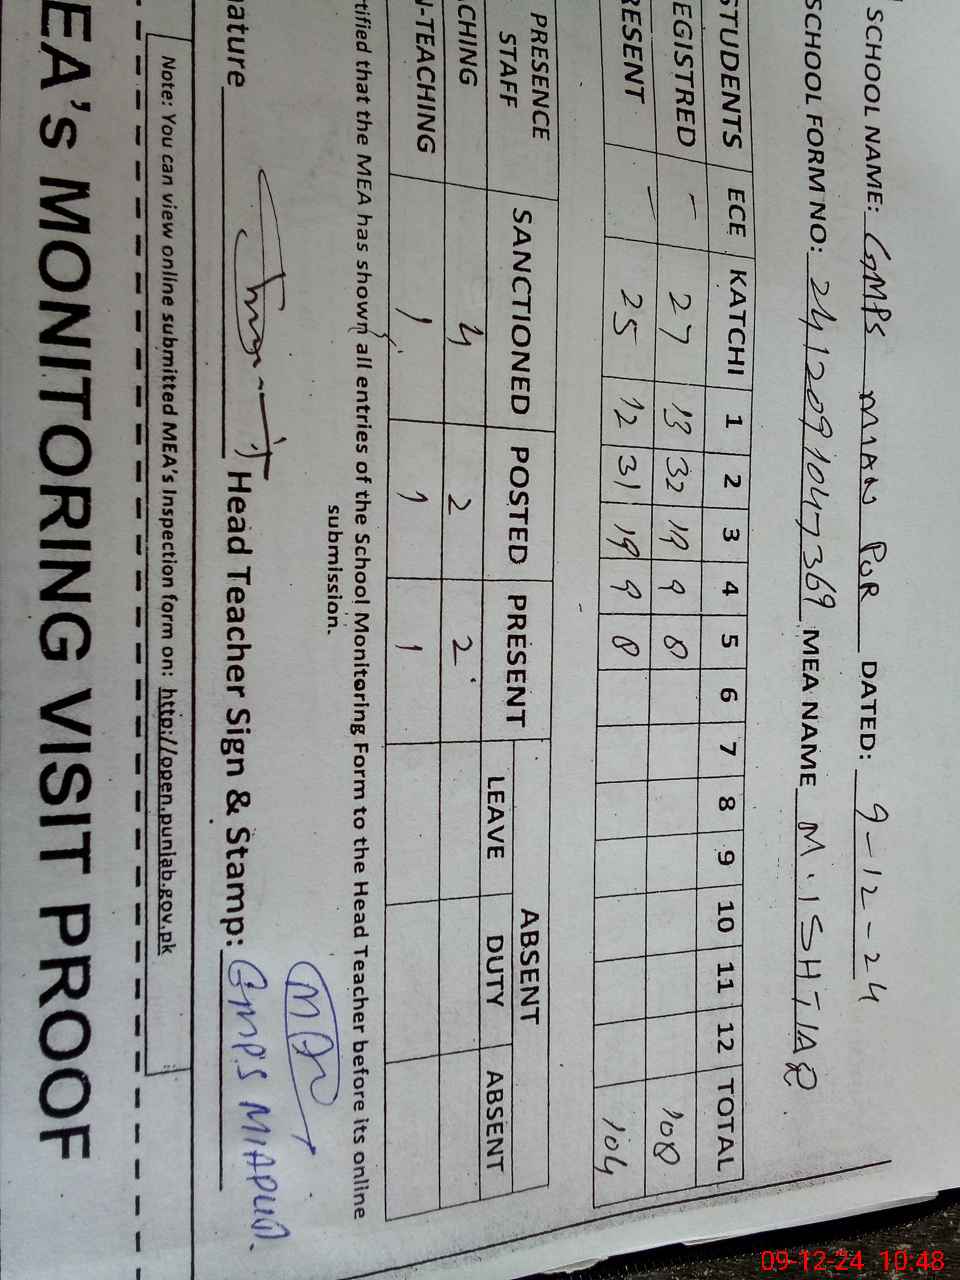 SCHOOL NAME: GMPS MIAN PUR DATED: 9-12-24
SCHOOL FORM NO: 2412091047369 MEA NAME M. ISHTIAQ.
STUDENTS ECE KATCHI 1 2 3 4 5 6 7 8 9 10 11 12 TOTAL
EGISTRED - 27 13 32 19 9 8 108
RESENT - 25 12 31 19 9 8 104
PRESENCE STAFF SANCTIONED POSTED PRESENT ABSENT
LEAVE DUTY ABSENT
CHING 4 2 2
N-TEACHING 1 1 1
rtified that the MEA has shown all entries of the School Monitoring Form to the Head Teacher before its online
submission.
nature Head Teacher Sign & Stamp: GMPS MIAPUR.
Note: You can view online submitted MEA's Inspection form on: http://open.punjab.gov.pk
EA's MONITORING VISIT PROOF
09-12-24 10:48